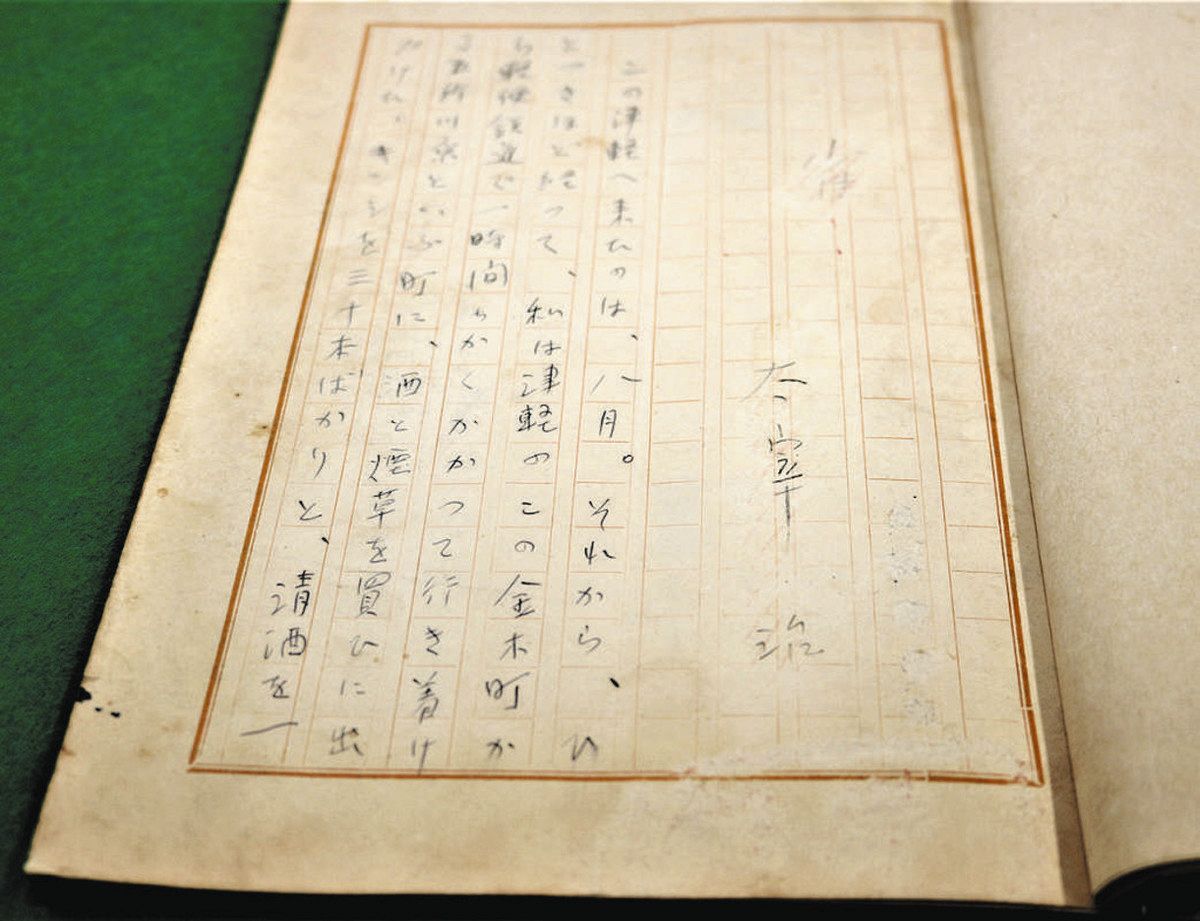 雀
太宰治
この津軽へ来たのは、八月。それから、ひ
とつきほど経つて、私は津軽のこの金木町か
ら軽便鉄道で一時間ちかくかかつて行き着け
る五所川原といふ町に、酒と煙草を買ひに出
かけた、キンシを三十本ばかりと、清酒を一